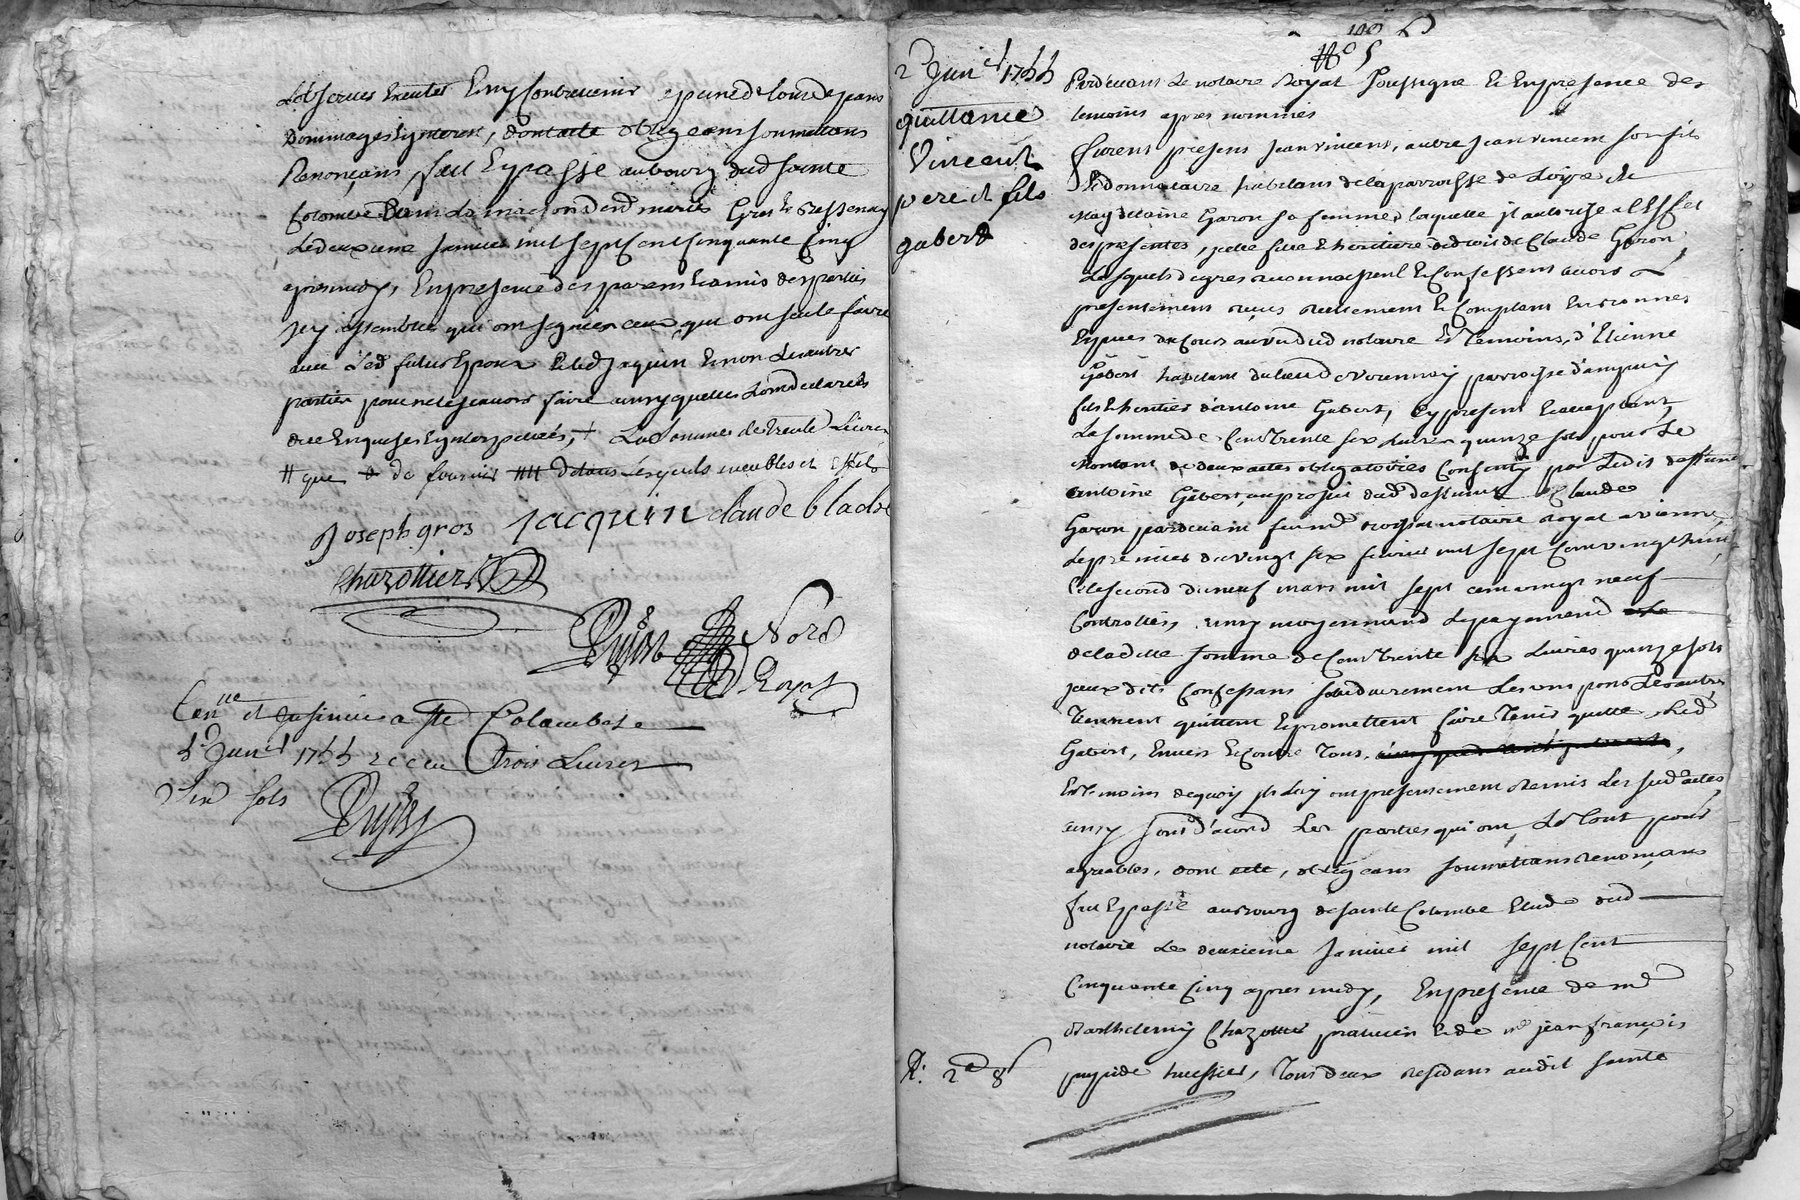 observer executer sans y contrevenir a peine de tous depans
dommages et interest, dont acte obligeans soumettans
Renonçans, fait et passé au bourg dud sainte
Colombe dans la maison desd mariés Gros et
Le deuxieme janvier mil sept cent cinquante cinq
apres midy, En presence des parens et amis des parties
icy assemblés qui ont signé ceux qui ont sceu le faire
avec led futur Epoux et led jaquin Et non les autres
parties pour ne le sçavoir faire ainsy quelles l'ont declarés
de ce Enquises et interpellées, + La somme de trente Livres
# que de fournir dans lesquels meubles et effets
Joseph gros jacquin claude blache
Chazottier
Dujast Nore
Royal
Con.lle et Insinué a Ste Colombe le
5e Janr 1755 receu trois Livres
six sols Dujast
2 Janr 1755
quittance
Vincent
pere et fils
gabert
100
No 5
Pardevant Le notaire Royal soussigné et En presence des
temoins apres nommés
furent presens jean vincent, autre jean vincent son fils
et donnataire habitans de la parroisse de Loire et
magdelaine Garon sa femme laquelle il autorise a l'Effet
des presentes, icelle fille et heritiere de droit de Claude Garon,
Lesquels de gres reconnaissent et Confessent avoir
presentement reçus reellement et Comptant En bonnes
Especes de Cours au vu dud notaire et temoins, d'Etienne
Gabert habitant du lieu de parroisse d'ampuis
fils et heritier d'antoine Gabert, icy present et acceptant,
La somme de Cent trente six livres quinze sols pour le
montant de deux actes obligatoires Consentis par Ledit deffunt
antoine Gabert, au profit dud deffunt Claude
Garon pardevant feu me notaire Royal a vienne,
Le premier du vingt six fevrier mil sept Cent vingt huit
Et le second du neuf mars mil sept cent vingt neuf
Controllés, ainsy moyennant Le payement
de la ditte somme de Cent trente six Livres quinze sols
iceux dits Confessans solidairement Les uns pour Les autres
tiennent quittent et promettent faire tenir quitte, led
Gabert, Envers et Contre tous,
Et moins de quoy ils luy ont presentement Remis Les susd actes
ainsy sont d'acord Les parties qui ont Le tout pour
agreables, dont acte, obligeans soumettans renonçans
fait Et passé au bourg de sainte Colombe Etude dud
notaire Le deuxieme Janvier mil sept Cent
Cinquante Cinq apres midy, En presence de me
Barthelemy Chazottier praticien et de me jean françois
pupide huissier, tous deux residans audit sainte
R. 2d 8s